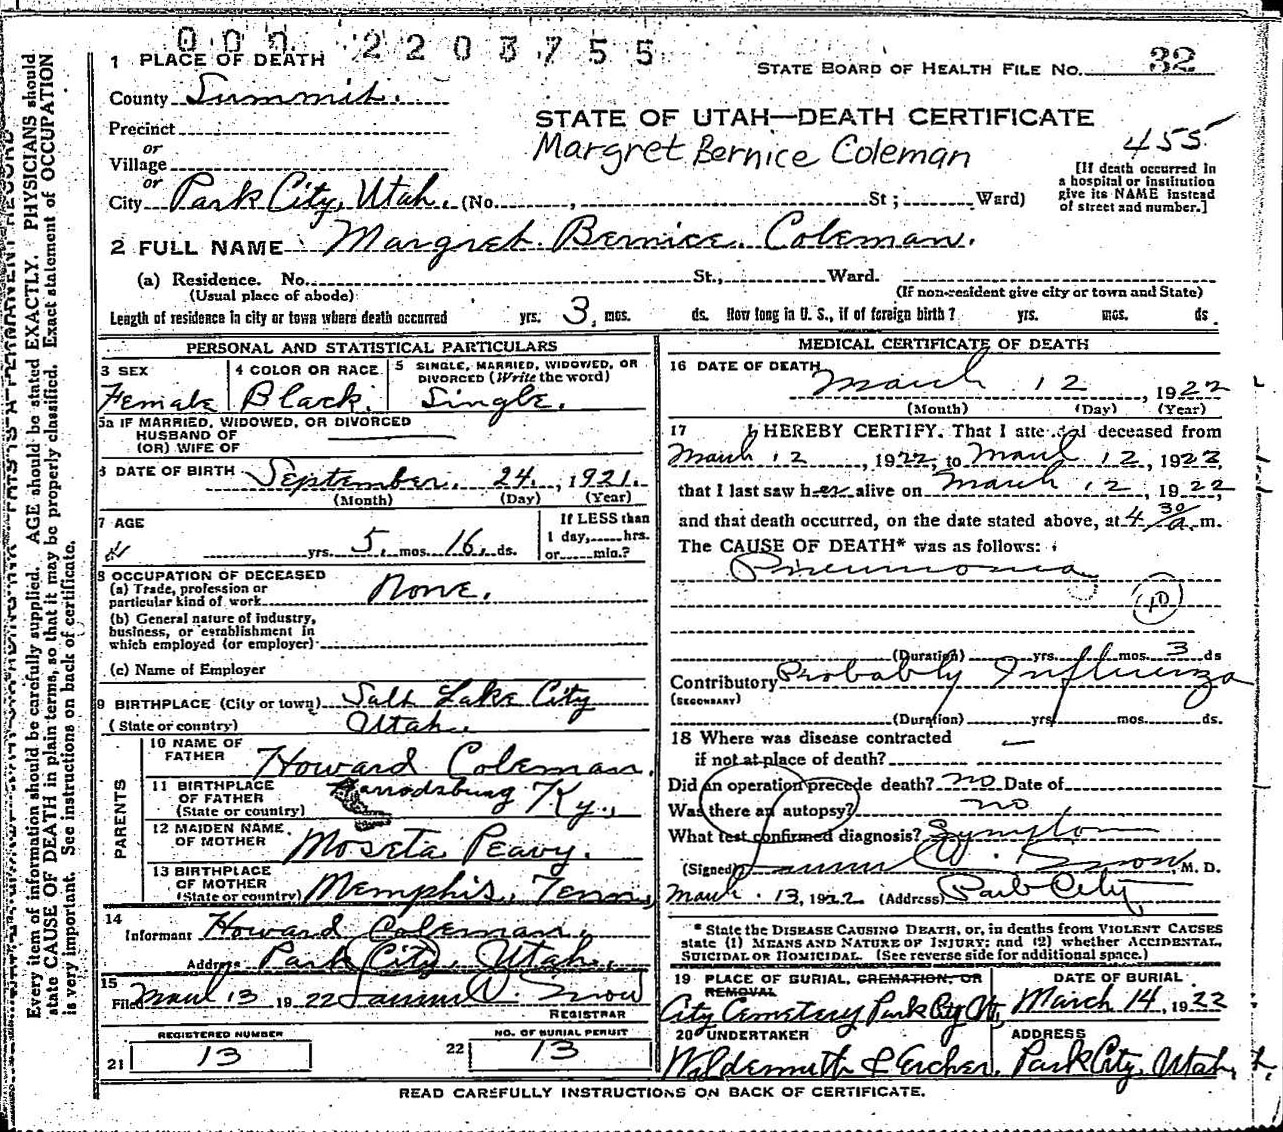 000 2203755
1 PLACE OF DEATH
STATE BOARD OF HEALTH FILE NO. 32
County Summit.
STATE OF UTAH—DEATH CERTIFICATE
Precinct
Margret Bernice Coleman
455
or
Village
or
City Park City, Utah. (No. , St ; Ward)
[If death occurred in
a hospital or institution
give its NAME instead
of street and number.]
2 FULL NAME Margret Bernice Coleman.
(a) Residence. No. St., Ward.
(Usual place of abode)
(If non-resident give city or town and State)
Length of residence in city or town where death occurred yrs. 3, mos. ds. How long in U. S., if of foreign birth? yrs. mos. ds.
PERSONAL AND STATISTICAL PARTICULARS
3 SEX
Female
4 COLOR OR RACE
Black.
5 SINGLE, MARRIED, WIDOWED, OR
DIVORCED (Write the word)
Single.
5a IF MARRIED, WIDOWED, OR DIVORCED
HUSBAND OF
(OR) WIFE OF
6 DATE OF BIRTH September. 24. , 1921.
(Month) (Day) (Year)
7 AGE
yrs. 5, mos. 16, ds.
If LESS than
1 day, hrs.
or min.?
8 OCCUPATION OF DECEASED
(a) Trade, profession or
particular kind of work None.
(b) General nature of industry,
business, or establishment in
which employed (or employer)
(c) Name of Employer
9 BIRTHPLACE (City or town) Salt Lake City
(State or country) Utah.
PARENTS
10 NAME OF
FATHER Howard Coleman.
11 BIRTHPLACE
OF FATHER
(State or country) Harrodsburg Ky.,
12 MAIDEN NAME
OF MOTHER Moseta Peavy.
13 BIRTHPLACE
OF MOTHER
(State or country) Memphis, Tenn,
14
Informant Howard Coleman.
Address Park City, Utah.
15
Filed March 13 1922 Snow
REGISTRAR
REGISTERED NUMBER
21 13
NO. OF BURIAL PERMIT
22 13
MEDICAL CERTIFICATE OF DEATH
16 DATE OF DEATH
March 12 , 1922
(Month) (Day) (Year)
17 I HEREBY CERTIFY. That I attended deceased from
March 12 , 1922, to March 12, 1922,
that I last saw her alive on March 12 , 1922,
and that death occurred, on the date stated above, at 4 30 a. m.
The CAUSE OF DEATH* was as follows:
Pneumonia
10
(Duration) yrs. mos. 3 ds
Contributory Probably Influenza
(SECONDARY)
(Duration) yrs. mos. ds.
18 Where was disease contracted
if not at place of death?
Did an operation precede death? no Date of
Was there an autopsy? no
What test confirmed diagnosis? Symptom
(Signed) W. Snow, M. D.
March 13, 1922 (Address) Park City,
* State the DISEASE CAUSING DEATH, or, in deaths from VIOLENT CAUSES
state (1) MEANS AND NATURE OF INJURY; and (2) whether ACCIDENTAL,
SUICIDAL OR HOMICIDAL. (See reverse side for additional space.)
19 PLACE OF BURIAL, CREMATION, OR
REMOVAL
City Cemetery Park City Ut,
DATE OF BURIAL
March 14, 1922
20 UNDERTAKER
Wildemuth & Archer.
ADDRESS
Park City, Utah.
READ CAREFULLY INSTRUCTIONS ON BACK OF CERTIFICATE.
Every item of information should be carefully supplied. AGE should be stated EXACTLY. PHYSICIANS should
state CAUSE OF DEATH in plain terms, so that it may be properly classified. Exact statement of OCCUPATION
is very important. See instructions on back of certificate.